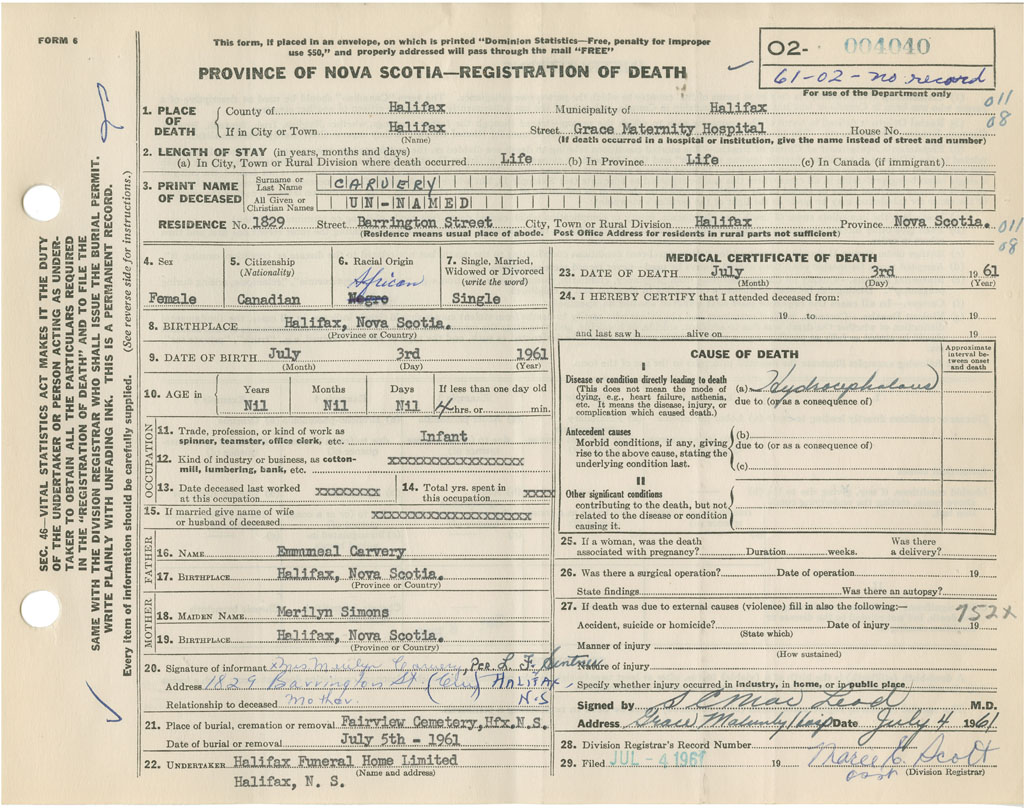 FORM 6
This form, if placed in an envelope, on which is printed "Dominion Statistics—Free, penalty for improper
use $50," and properly addressed will pass through the mail "FREE"
PROVINCE OF NOVA SCOTIA—REGISTRATION OF DEATH
02- 004040
61-02-no record
For use of the Department only
SEC. 46—VITAL STATISTICS ACT MAKES IT THE DUTY
OF THE UNDERTAKER OR PERSON ACTING AS UNDER-
TAKER TO OBTAIN ALL THE PARTICULARS REQUIRED
IN THE "REGISTRATION OF DEATH" AND TO FILE THE
SAME WITH THE DIVISION REGISTRAR WHO SHALL ISSUE THE BURIAL PERMIT.
WRITE PLAINLY WITH UNFADING INK. THIS IS A PERMANENT RECORD.
Every item of information should be carefully supplied. (See reverse side for instructions.)
1. PLACE OF DEATH County of Halifax Municipality of Halifax 011
If in City or Town Halifax Street Grace Maternity Hospital House No. 08
(Name) (If death occurred in a hospital or institution, give the name instead of street and number)
2. LENGTH OF STAY (in years, months and days)
(a) In City, Town or Rural Division where death occurred Life (b) In Province Life (c) In Canada (if immigrant)
3. PRINT NAME OF DECEASED Surname or Last Name CARVERY
All Given or Christian Names UN-NAMED
RESIDENCE No. 1829 Street Barrington Street City, Town or Rural Division Halifax Province Nova Scotia. 011
(Residence means usual place of abode. Post Office Address for residents in rural parts not sufficient) 08
4. Sex Female
5. Citizenship (Nationality) Canadian
6. Racial Origin African Negro
7. Single, Married, Widowed or Divorced (write the word) Single
8. BIRTHPLACE Halifax, Nova Scotia.
(Province or Country)
9. DATE OF BIRTH July 3rd 1961
(Month) (Day) (Year)
10. AGE in Years Months Days If less than one day old
Nil Nil Nil 4 hrs. or min.
OCCUPATION
11. Trade, profession, or kind of work as
spinner, teamster, office clerk, etc. Infant
12. Kind of industry or business, as cotton-
mill, lumbering, bank, etc. xxxxxxxxxxxxxxxxxxxxx
13. Date deceased last worked at this occupation xxxxxxxxxx 14. Total yrs. spent in this occupation xxxx
15. If married give name of wife
or husband of deceased xxxxxxxxxxxxxxxxxxxxxxxxx
FATHER
16. NAME Emmuneal Carvery
17. BIRTHPLACE Halifax, Nova Scotia.
(Province or Country)
MOTHER
18. MAIDEN NAME Merilyn Simons
19. BIRTHPLACE Halifax, Nova Scotia.
(Province or Country)
20. Signature of informant Mrs Merilyn Carvery, PER L. F.
Address 1829 Barrington St. (City) HALIFAX N.S
Relationship to deceased mother.
21. Place of burial, cremation or removal Fairview Cemetery, Hfx.N.S.
Date of burial or removal July 5th - 1961
22. UNDERTAKER Halifax Funeral Home Limited
(Name and address)
Halifax, N. S.
MEDICAL CERTIFICATE OF DEATH
23. DATE OF DEATH July 3rd 1961
(Month) (Day) (Year)
24. I HEREBY CERTIFY that I attended deceased from:
19 to 19
and last saw h alive on 19
CAUSE OF DEATH
Approximate interval between onset and death
I
Disease or condition directly leading to death
(This does not mean the mode of
dying, e.g., heart failure, asthenia,
etc. It means the disease, injury, or
complication which caused death.)
(a) Hydrocephalous
due to (or as a consequence of)
Antecedent causes
Morbid conditions, if any, giving
rise to the above cause, stating the
underlying condition last.
(b)
due to (or as a consequence of)
(c)
II
Other significant conditions
contributing to the death, but not
related to the disease or condition
causing it.
25. If a woman, was the death Was there
associated with pregnancy? Duration weeks. a delivery?
26. Was there a surgical operation? Date of operation 19
State findings Was there an autopsy?
27. If death was due to external causes (violence) fill in also the following:— 752x
Accident, suicide or homicide? Date of injury 19
(State which)
Manner of injury
(How sustained)
Nature of injury
Specify whether injury occurred in industry, in home, or in public place
Signed by S C Mac Leod M.D.
Address Grace Maternity Hosp Date July 4 1961
28. Division Registrar's Record Number
29. Filed JUL - 4 1961 19 E. Scott
asst (Division Registrar)